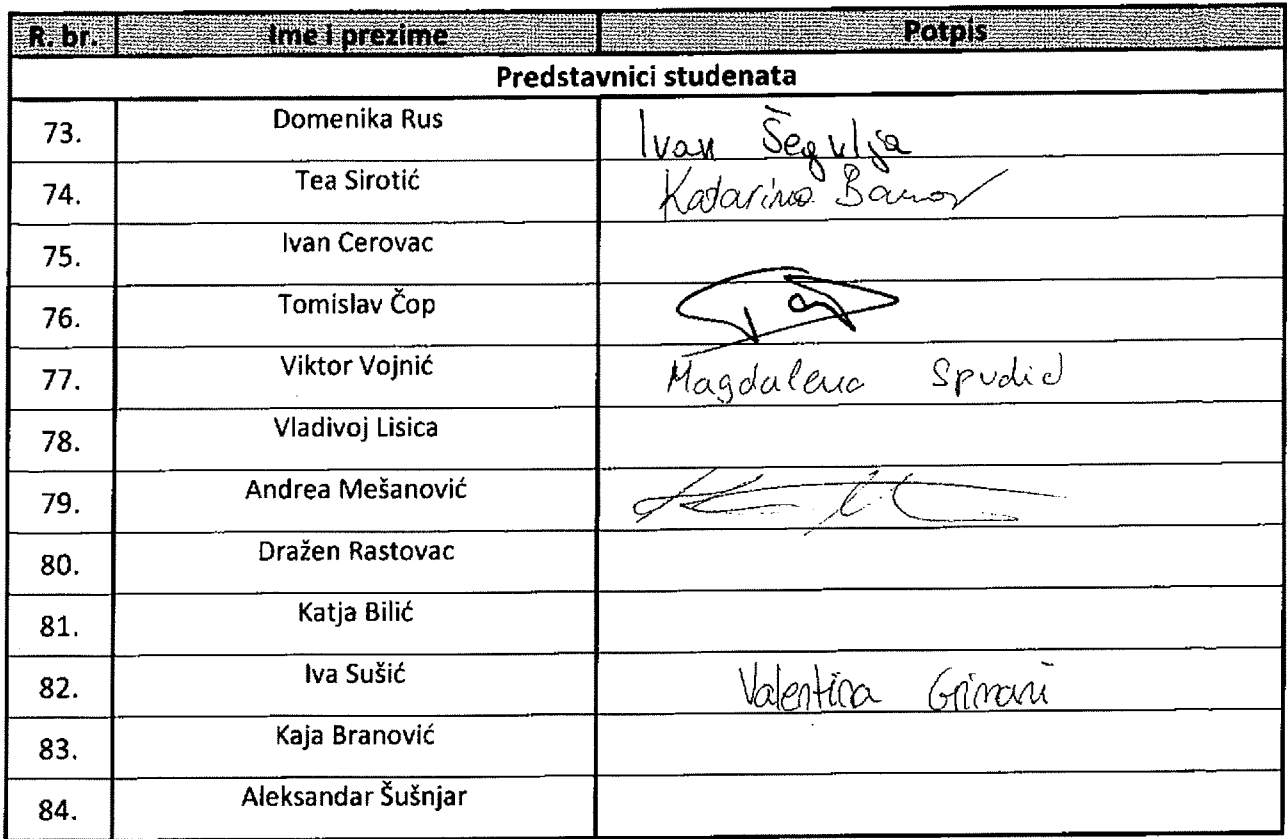 R. br. Ime i prezime Potpis
Predstavnici studenata
73. Domenika Rus Ivan Šegulja
74. Tea Sirotić Katarina
75. Ivan Cerovac
76. Tomislav Čop
77. Viktor Vojnić Magdalena Spudić
78. Vladivoj Lisica
79. Andrea Mešanović
80. Dražen Rastovac
81. Katja Bilić
82. Iva Sušić Valentina Grimani
83. Kaja Branović
84. Aleksandar Šušnjar